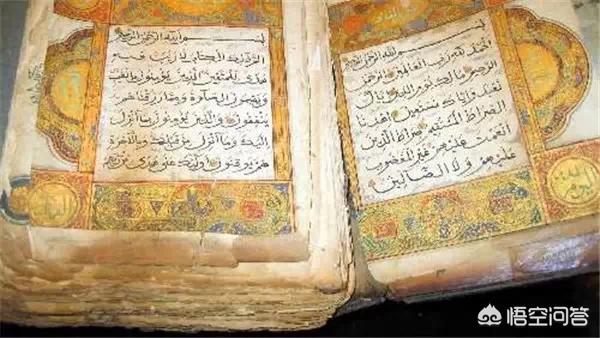 بسم الله الرحمن الرحيم
الحمد لله رب العالمين الرحمن
الرحيم مالك يوم الدين اياك
نعبد واياك نستعين اهدنا
الصراط المستقيم صراط الذين
انعمت عليهم غير المغضوب
عليهم ولا الضالين
بسم الله الرحمن الرحيم
الم ذلك الكتاب لا ريب فيه
هدى للمتقين الذين يؤمنون بالغيب
ويقيمون الصلوة ومما رزقناهم
ينفقون والذين يؤمنون بما انزل
اليك وما انزل من قبلك وبالاخرة
هم يوقنون اولئك على هدى من ربهم
悟空问答